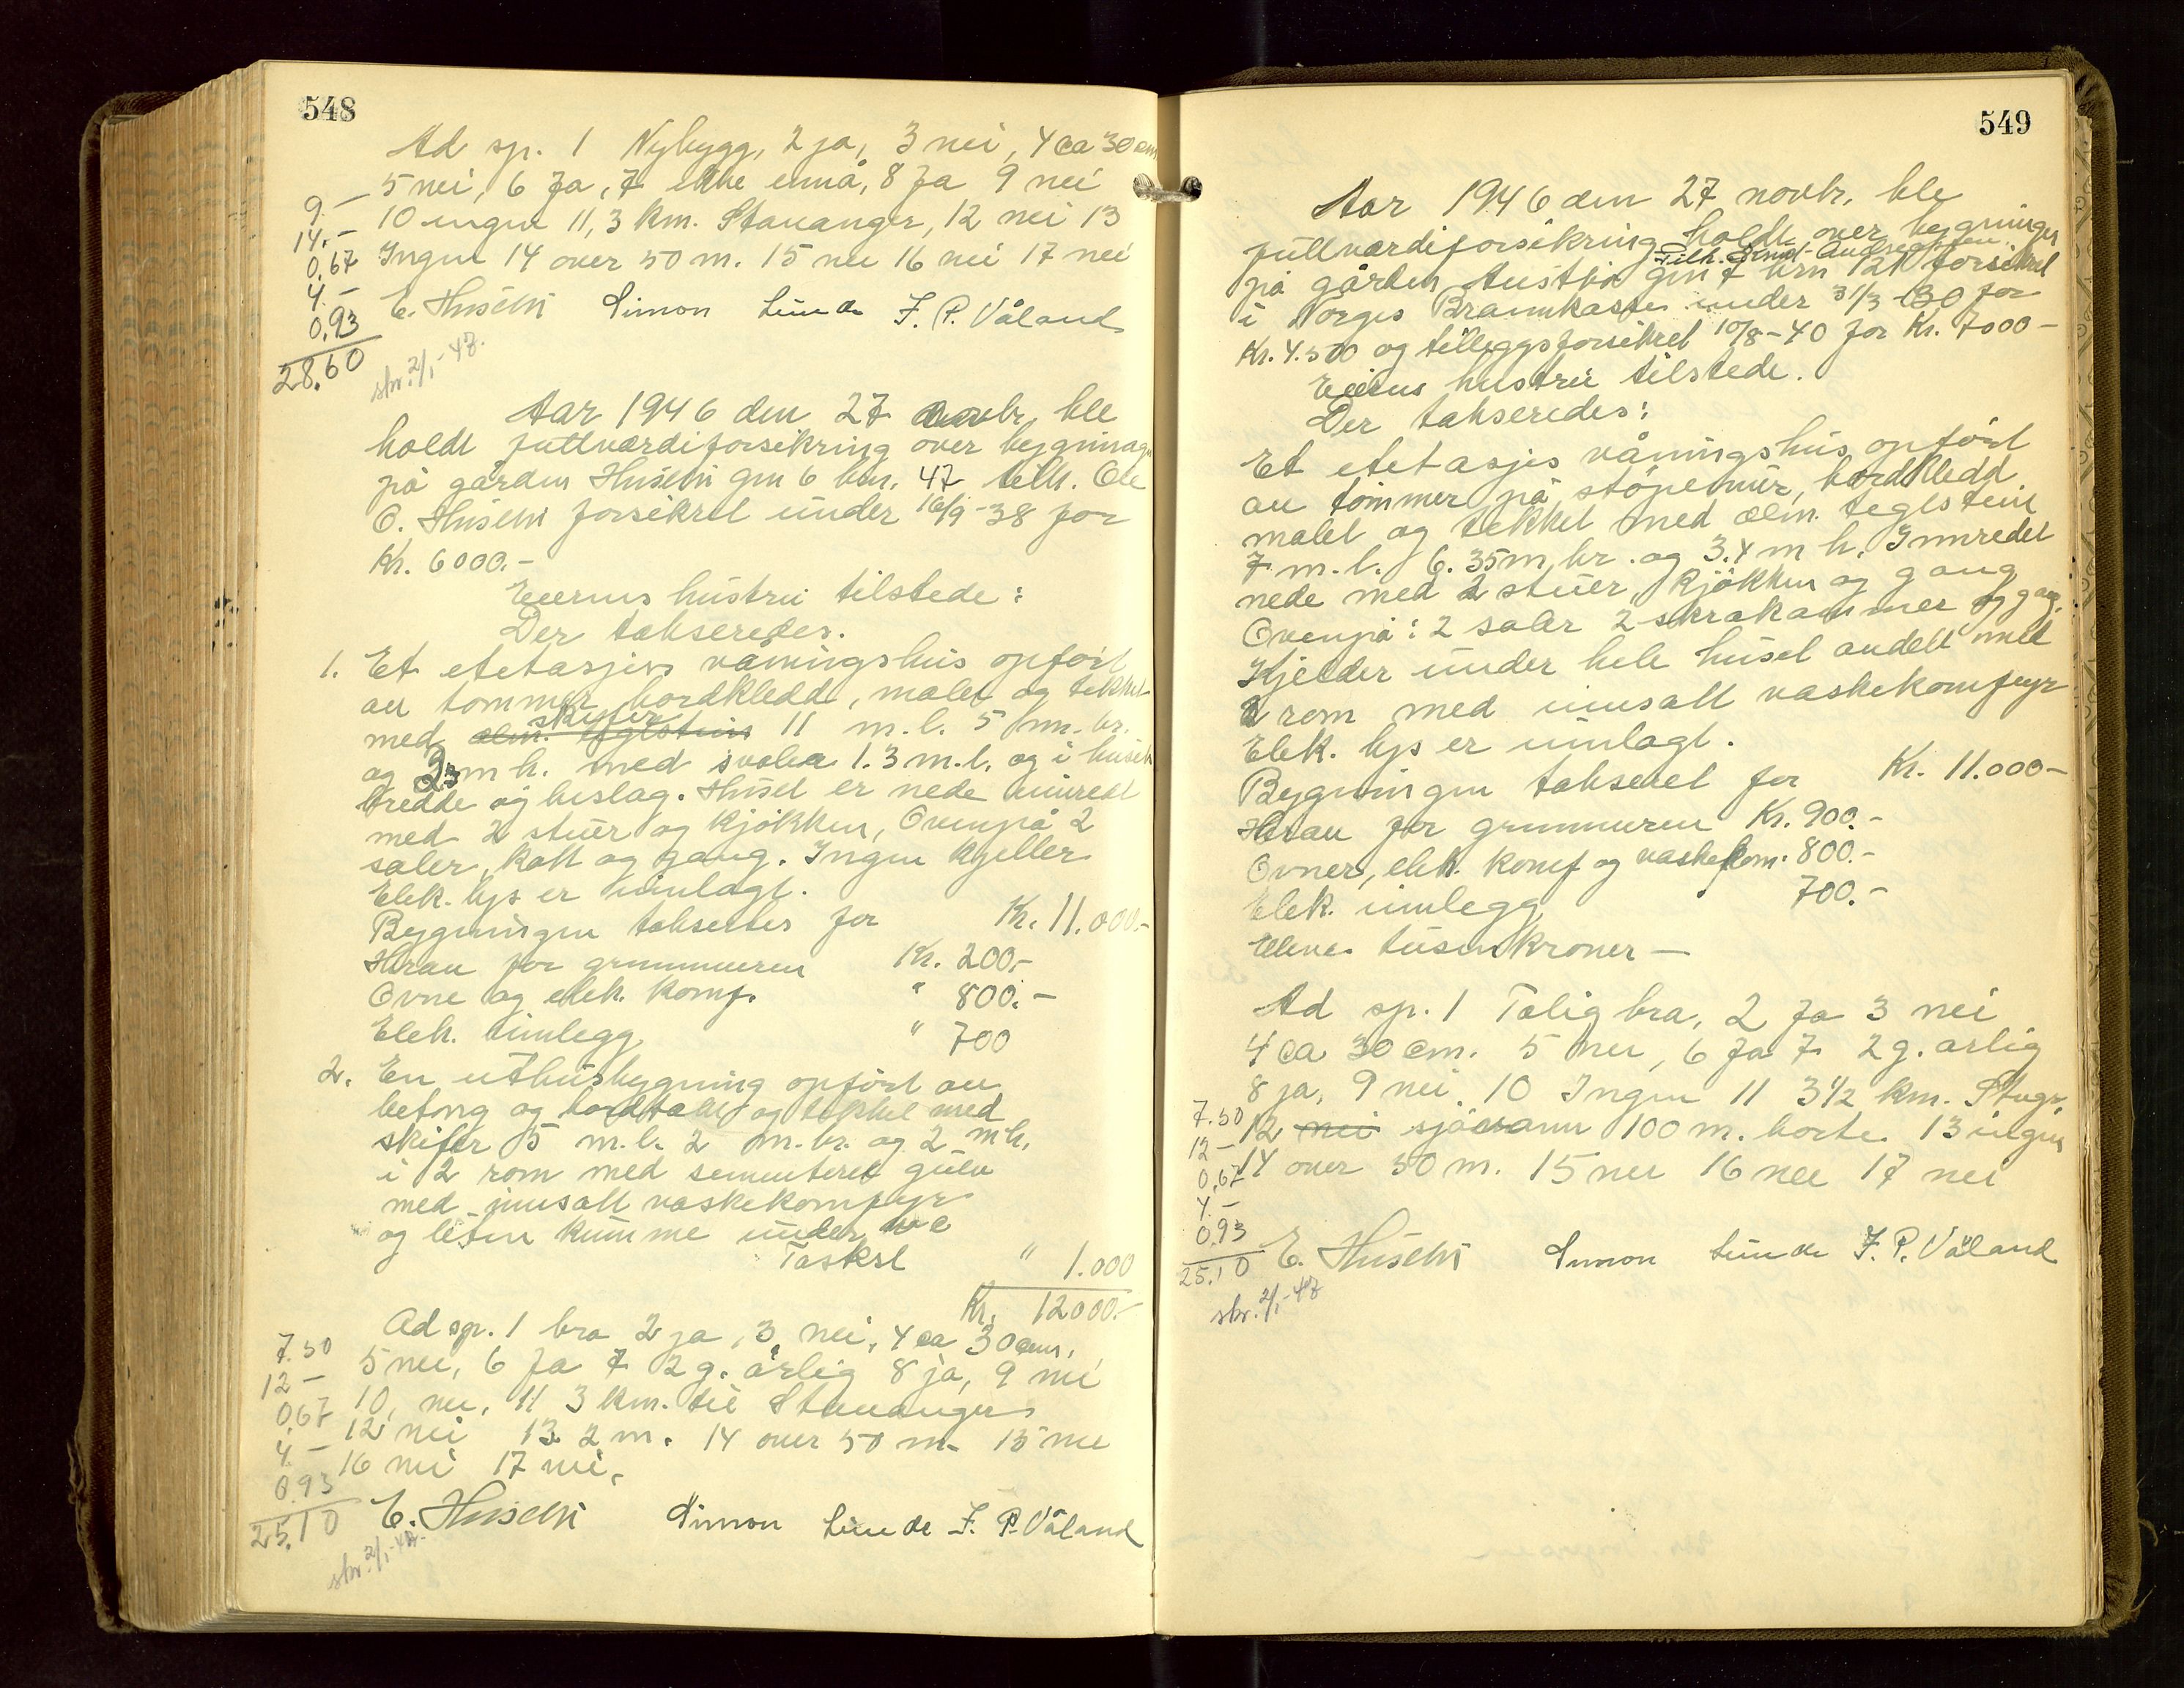 548
Ad sp. 1 Nybygg, 2 ja, 3 nei, 4 ca 30 cm
5 nei, 6 Ja, 7 ikke ennå, 8 Ja 9 nei
10 ingen 11, 3 km. Stavanger, 12 nei 13
Ingen 14 over 50 m. 15 nei 16 nei 17 nei
E. Husebi Simon Lunde F. P. Våland
9.-
14.-
0,67
4.-
0,93
28,60
skr. 2/1-47.
Aar 1946 den 27 novbr, ble
holdt fullværdiforsikring over bygninger
på gården Husebi gnr 6 brn. 47 tilh. Ole
O. Husebi forsikret under 16/9-38 for
Kr. 6000.-
Eierens hustru tilstede:
Der takseredes.
1. Et etetasjes våningshus opført
av tømmer bordkledd, malet og tekket
med alm. teglstein skifer 11 m.l. 5 m. br.
og 3 m h. med svaler 1.3 m.l. og i husets
bredde og beslag. Huset er nede innredet
med 2 stuer og kjøkken, Ovenpå 2
saler, kott og gang. Ingen kjeller
Elek. lys er innlagt.
Bygningen takseres for Kr. 11.000.-
Herav for grunnmuren Kr. 200.-
Ovne og elek. komf. " 800.-
Elek. innlegg " 700
2. En uthusbygning opført av
betong og bordtak og tekket med
skifer 5 m.l. 2 m.br. og 2 m h.
i 2 rom med sementeret gulv
med innsatt vaskekomfyr
og liten kumme under
Takseret " 1.000
Kr. 12000.-
Ad sp. 1 bra 2 ja, 3 nei, 4 ca 30 cm,
5 nei, 6 Ja 7 2 g. årlig 8 ja, 9 nei
10, nei, 11 3 km. til Stavanger
12 nei 13 2 m. 14 over 50 m- 15 nei
16 nei 17 nei.
7.50
12-
0,67
4.-
0.93
25,10
E. Husebi Simon Lunde F. P. Våland
skr. 2/1-47.
549
Aar 1946 den 27 novbr. ble
fullværdiforsikring holdt over bygninger
Tilh. Andreassen
på gården Austbø gnr 7 brn 121 forsikret
i Norges Brannkasse under 31/3-30 for
Kr. 4.500 og tilleggsforsikret 10/8-40 for Kr. 7000-
Eierens hustru tilstede.
Der takseredes:
Et etetasjes våningshus opført
av tømmer på støpemur, bordkledd
malet og tekket med alm. teglstein
7 m.l. 6.35 m, br. og 3.4 m h. Innredet
nede med 2 stuer, kjøkken og gang
Ovenpå: 2 saler 2 skråkammer og gang.
Kjelder under hele huset avdelt med
2 rom med innsatt vaskekomfyr
Elek. lys er innlagt.
Bygningen takseret for Kr. 11.000-
Herav for grunnmuren Kr. 900.-
Ovner, elek. komf og vaskekom. 800.-
Elek. innlegg 700.-
Elleve tusen kroner -
Ad sp. 1 Tålig bra, 2 Ja 3 nei
4 ca 30 cm. 5 nei, 6 Ja 7 2 g. årlig
8 ja, 9 nei. 10 Ingen 11 3 1/2 km. Stvgr,
12 nei sjøvann 100 m. borte. 13 ingen
14 over 50 m. 15 nei 16 nei 17 nei
7.50
12-
0,67
4.-
0.93
25.10
E. Husebi Simon Lunde F. P. Våland
skr. 2/1-47